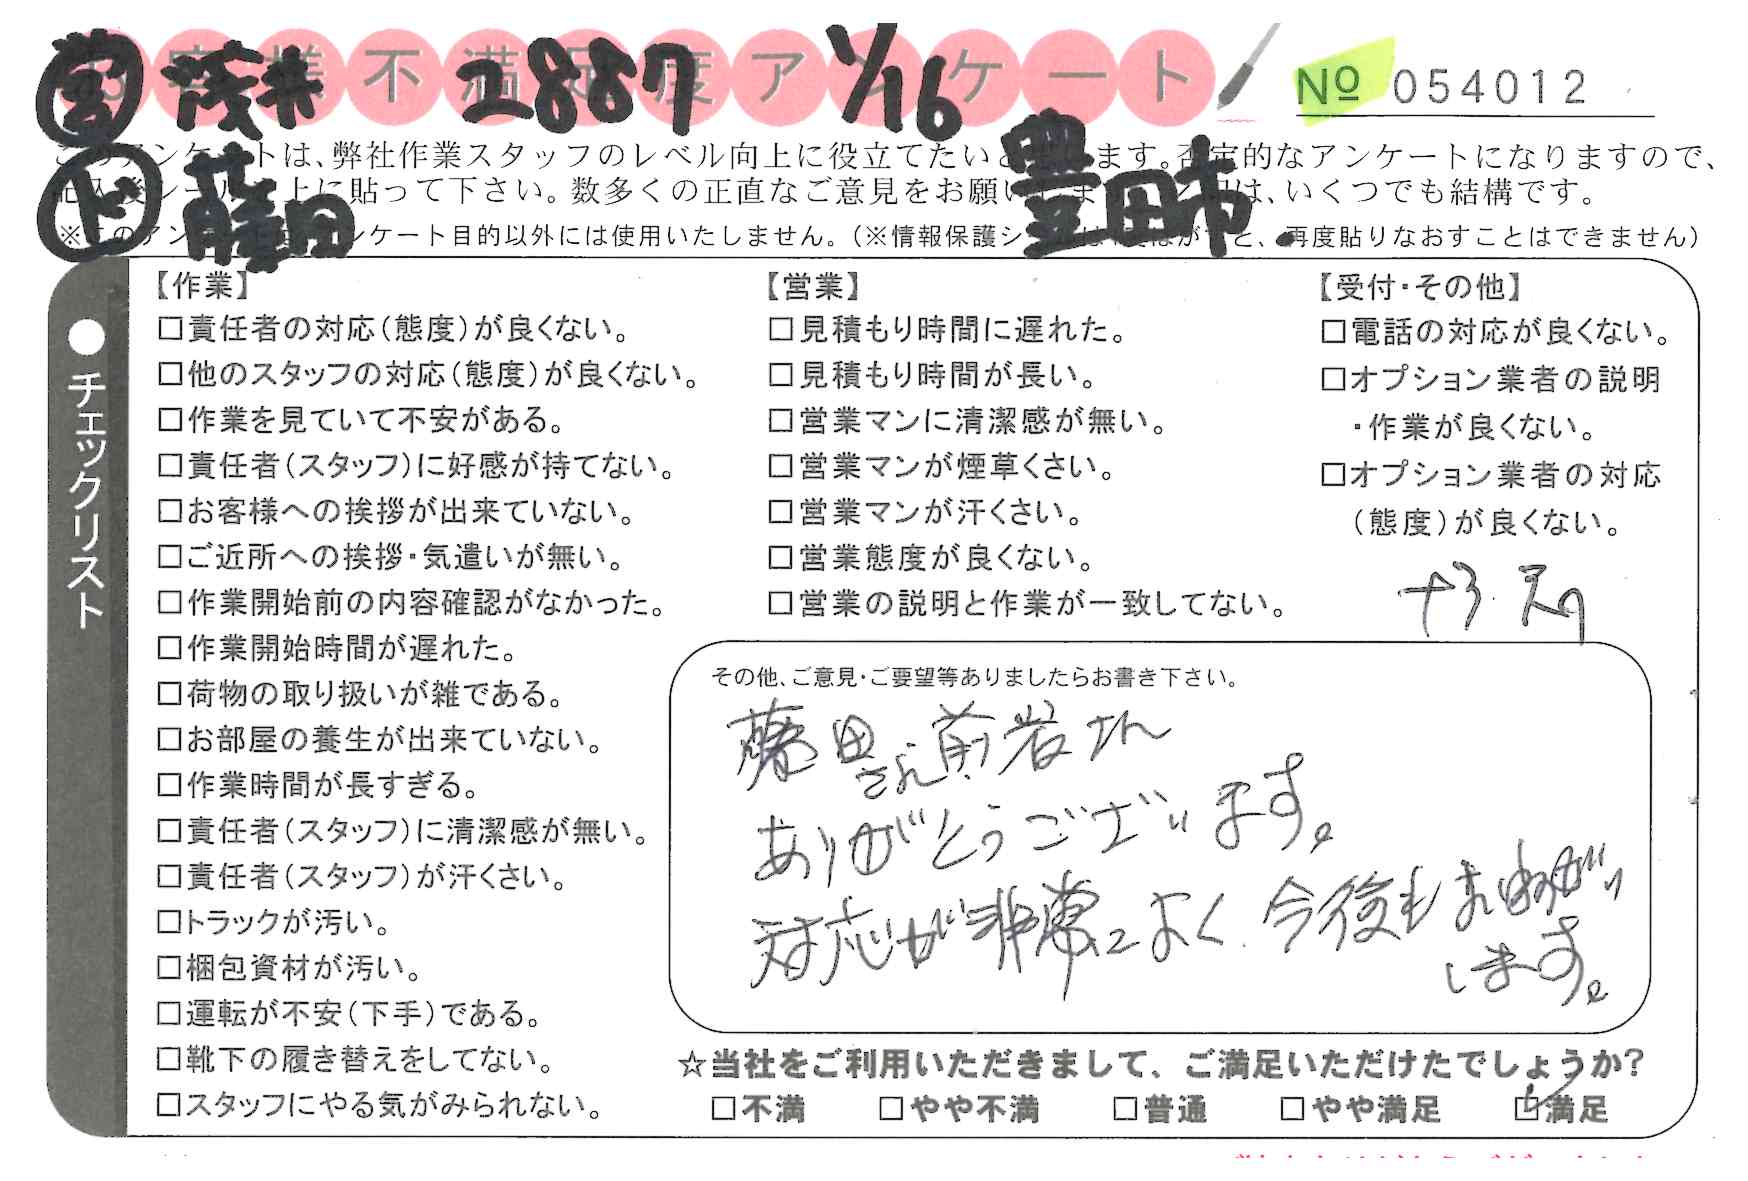 お客様不満足度アンケート
営 浅井 2887 1/16
№ 054012
ド 藤田
豊田市
このアンケートは、弊社作業スタッフのレベル向上に役立てたいと
ます。否定的なアンケートになりますので、
上に貼って下さい。数多くの正直なご意見をお願い
は、いくつでも結構です。
ンケート目的以外には使用いたしません。(※情報保護シ
再度貼りなおすことはできません)
●チェックリスト
【作業】
□責任者の対応(態度)が良くない。
□他のスタッフの対応(態度)が良くない。
□作業を見ていて不安がある。
□責任者(スタッフ)に好感が持てない。
□お客様への挨拶が出来ていない。
□ご近所への挨拶・気遣いが無い。
□作業開始前の内容確認がなかった。
□作業開始時間が遅れた。
□荷物の取り扱いが雑である。
□お部屋の養生が出来ていない。
□作業時間が長すぎる。
□責任者(スタッフ)に清潔感が無い。
□責任者(スタッフ)が汗くさい。
□トラックが汚い。
□梱包資材が汚い。
□運転が不安(下手)である。
□靴下の履き替えをしてない。
□スタッフにやる気がみられない。
【営業】
□見積もり時間に遅れた。
□見積もり時間が長い。
□営業マンに清潔感が無い。
□営業マンが煙草くさい。
□営業マンが汗くさい。
□営業態度が良くない。
□営業の説明と作業が一致してない。
【受付・その他】
□電話の対応が良くない。
□オプション業者の説明
・作業が良くない。
□オプション業者の対応
(態度)が良くない。
その他、ご意見・ご要望等ありましたらお書き下さい。
藤田さん前岩さん
ありがとうございます。
対応が非常によく、今後もおねがい
します。
☆当社をご利用いただきまして、ご満足いただけたでしょうか?
□不満 □やや不満 □普通 □やや満足 ☑満足